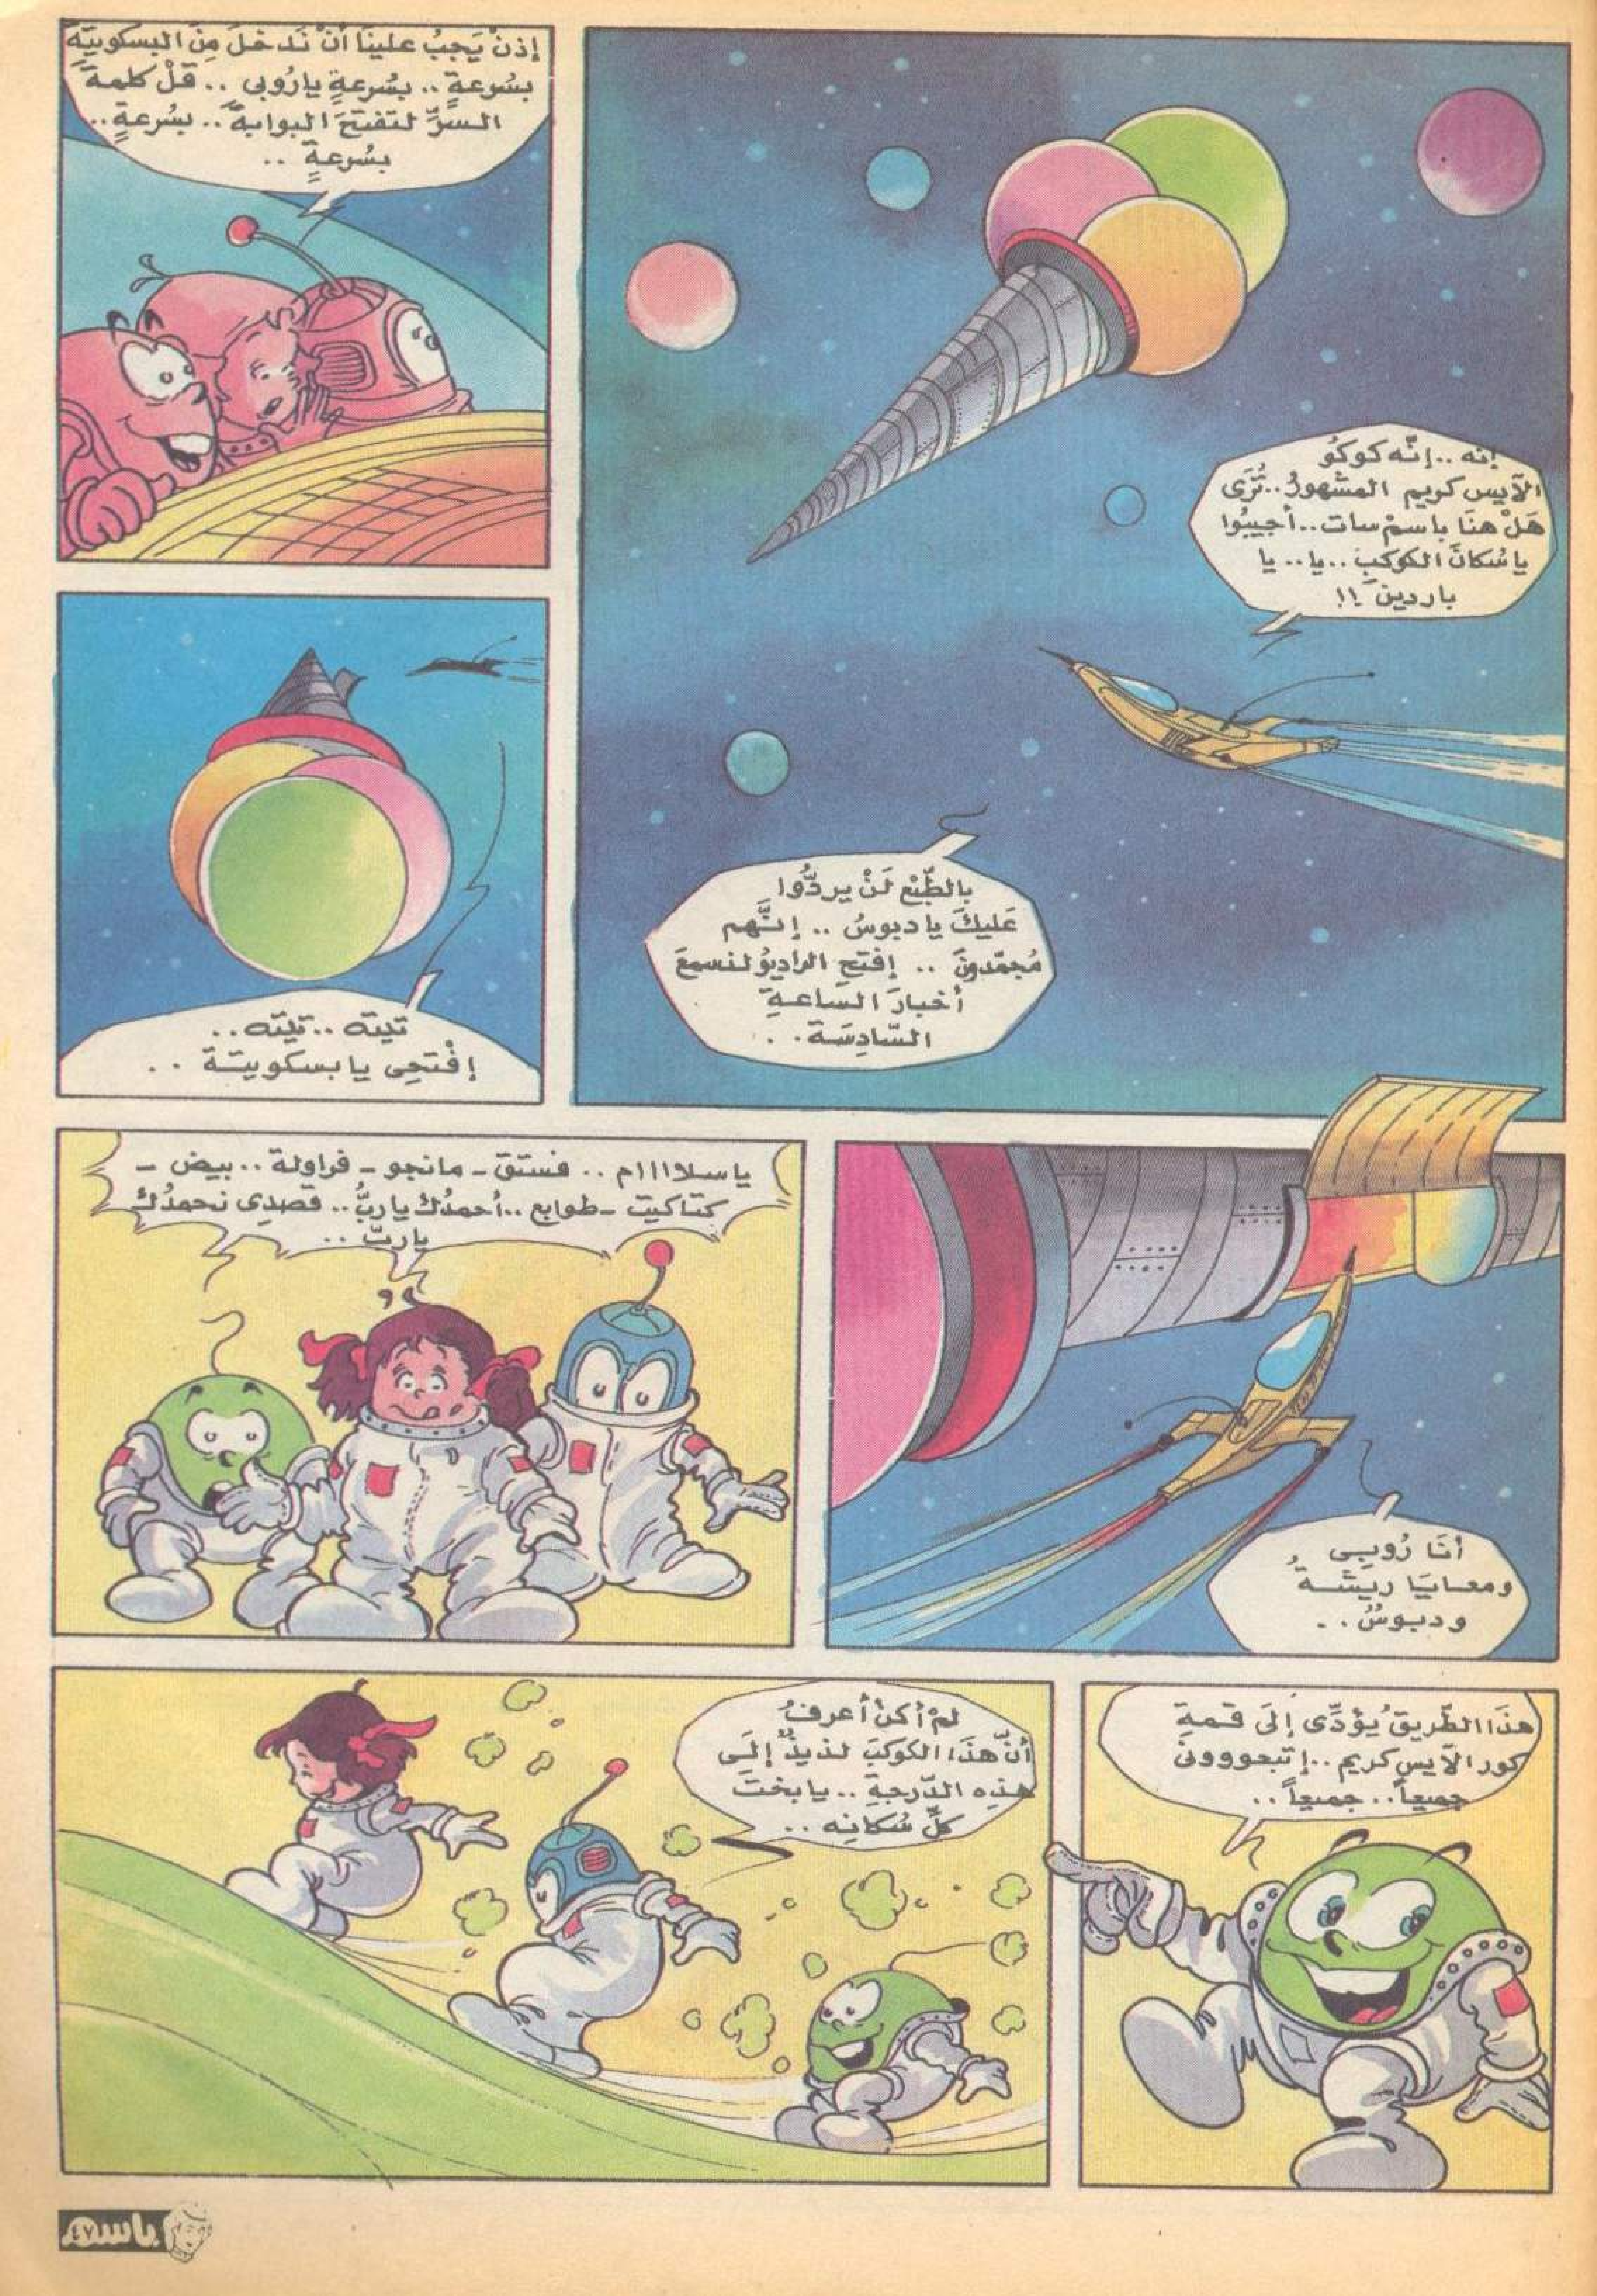 إنه .. إنّه كوكو
الآيس كريم المشهورُ .. تُرَى
هَلْ هنَا باسمْ سات .. أجيبُوا
يا سُكانَ الكوكبِ .. يا .. يا
باردينَ !!
بالطّبْع لَنْ يردُّوا
عَليكَ يا دبوسُ .. إنَّهم
مُجمّدونَ .. إفتحِ الراديوُ لنسمعَ
أخبارَ السّاعةِ
السّادِسَة . .
إذنْ يَجبُ علينَا أنْ نَدخلَ مِنَ البسكويتَةِ
بسُرعةٍ .. بسُرعةٍ يارُوبى .. قلْ كلمةَ
السّرِّ لتفتحَ البوابةَ .. بسُرعةٍ ..
بسُرعةٍ ..
تيته .. تيته ..
إفْتحِى يا بسكويتة . .
أنَا رُوبِى
ومعايَا ريشةُ
ودبوسُ . .
ياسلاااام .. فستق - مانجو - فراولة .. بيض -
كتاكيت - طوابع .. أحمدُك ياربُّ .. قصدِى نحمدُك
ياربّ ..
هذَا الطّريقُ يؤدِّى إلَى قمةِ
كور الآيس كريم .. إتبعوونى
جميعاً .. جميعاً ..
لمْ أكنْ أعرفُ
أنّ هذَا الكوكبَ لذيذٌ إلَى
هذِه الدّرجةِ .. يا بختَ
كلِّ سُكانِه ..
باسم
٤٧